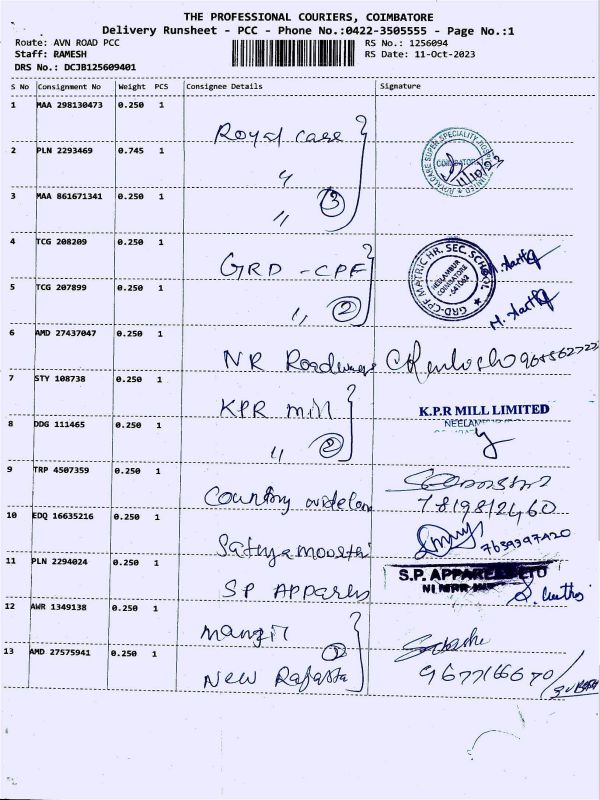 THE PROFESSIONAL COURIERS, COIMBATORE
Delivery Runsheet - PCC - Phone No.:0422-3505555 - Page No.:1
Route: AVN ROAD PCC
RS No.: 1256094
Staff: RAMESH
RS Date: 11-Oct-2023
DRS No.: DCJB125609401
S No Consignment No Weight PCS Consignee Details Signature
1 MAA 298130473 0.250 1
Royal care
2 PLN 2293469 0.745 1
〃
ROYALCARE SUPER SPECIALITY HOSPITAL LIMITED
COIMBATORE
11/10/23
3 MAA 861671341 0.250 1
〃 3
4 TCG 208209 0.250 1
GRD - CPF
GRD-CPF MATRIC HR. SEC. SCHOOL
NEELAMBUR
COIMBATORE
-641062
5 TCG 207899 0.250 1
〃 2
6 AMD 27437047 0.250 1
NR Roadways
7 STY 108738 0.250 1
KPR mill
K.P.R MILL LIMITED
8 DDG 111465 0.250 1
〃 2
9 TRP 4507359 0.250 1
Country
7819812460
10 EDQ 16635216 0.250 1
Sathyamoorthi
7639397420
11 PLN 2294024 0.250 1
SP APPARELS
S.P. APPARELS LTD
12 AWR 1349138 0.250 1
13 AMD 27575941 0.250 1
New